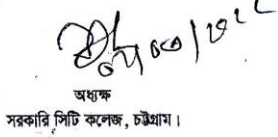 অধ্যক্ষ
সরকারি সিটি কলেজ, চট্টগ্রাম।